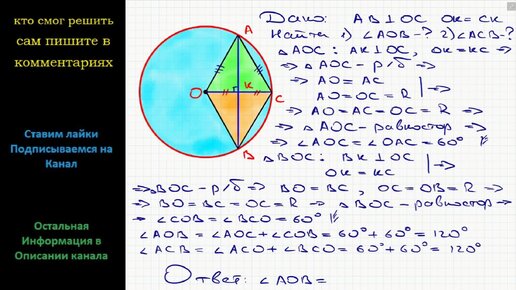 кто смог решить
сам пишите в
комментариях
Ставим лайки
Подписываемся на
Канал
Остальная
Информация в
Описании канала
A
O
K
C
B
Дано: AB⊥OC OK=CK
Найти 1) ∠AOB-? 2) ∠ACB-?
△AOC: AK⊥OC, OK=KC ⇒
⇒ △AOC - р/б ⇒
⇒ AO = AC
AO = OC = R | ⇒
⇒ AO = AC = OC = R ⇒
⇒ △AOC - равностор ⇒
⇒ ∠AOC = ∠OAC = 60°
△BOC: BK⊥OC
OK = KC | ⇒
⇒ △BOC - р/б ⇒ BO = BC, OC = OB = R ⇒
⇒ BO = BC = OC = R ⇒ △BOC - равностор ⇒
⇒ ∠COB = ∠BCO = 60°
∠AOB = ∠AOC + ∠COB = 60° + 60° = 120°
∠ACB = ∠ACO + ∠BCO = 60° + 60° = 120°
Ответ: ∠AOB =